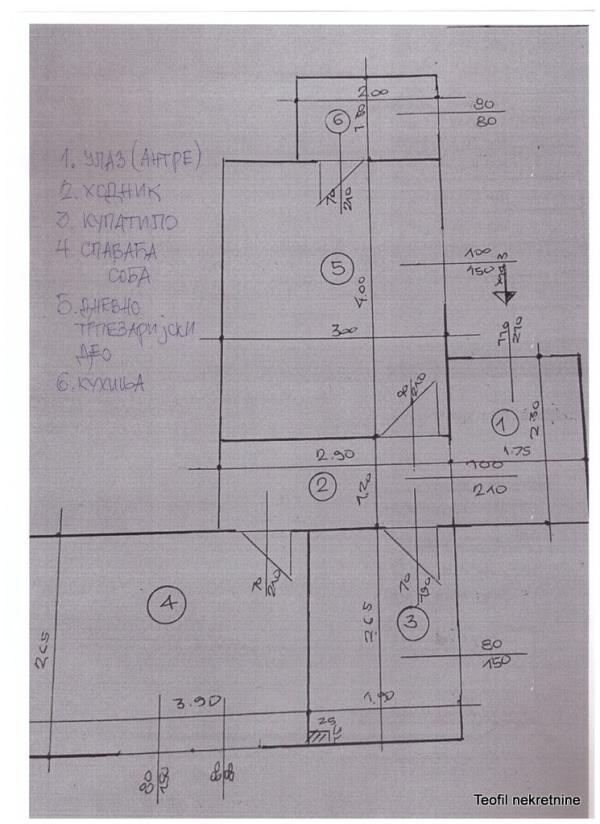 1. УЛАЗ (АНТРЕ)
2. ХОДНИК
3. КУПАТИЛО
4. СПАВАЋА
СОБА
5. ДНЕВНО
ТРПЕЗАРИЈСКИ
ДЕО
6. КУХИЊА
2.00
6
80
80
70
210
5
4.00
100
150
3.00
110
210
80
210
1
2.30
1.75
2.90
2
1.20
100
210
70
210
4
2.65
3.90
70
190
3
2.65
80
150
1.90
25
80
150
Teofil nekretnine